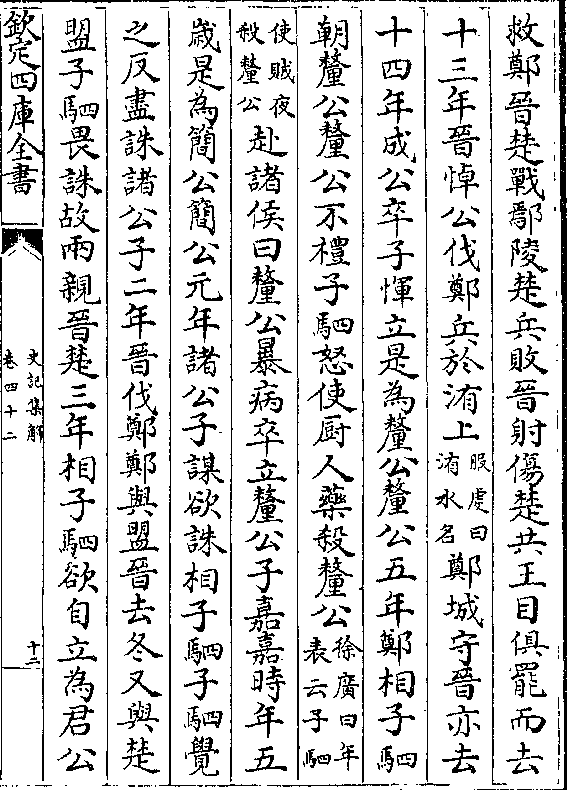 救鄭晉楚戰鄢陵楚兵敗晉射傷楚共王目俱罷而去
十三年晉悼公伐鄭兵於洧上服虔曰洧水名鄭城守晉亦去
十四年成公卒子惲立是為釐公釐公五年鄭相子駟
朝釐公釐公不禮子駟怒使厨人藥殺釐公徐廣曰年表云子駟
使賊夜殺釐公赴諸侯曰釐公暴病卒立釐公子嘉嘉時年五
嵗是為簡公簡公元年諸公子謀欲誅相子駟子駟覺
之反盡誅諸公子二年晉伐鄭鄭與盟晉去冬又與楚
盟子駟畏誅故兩親晉楚三年相子駟欲自立為君公
欽定四庫全書
史記集解
卷四十二
十二